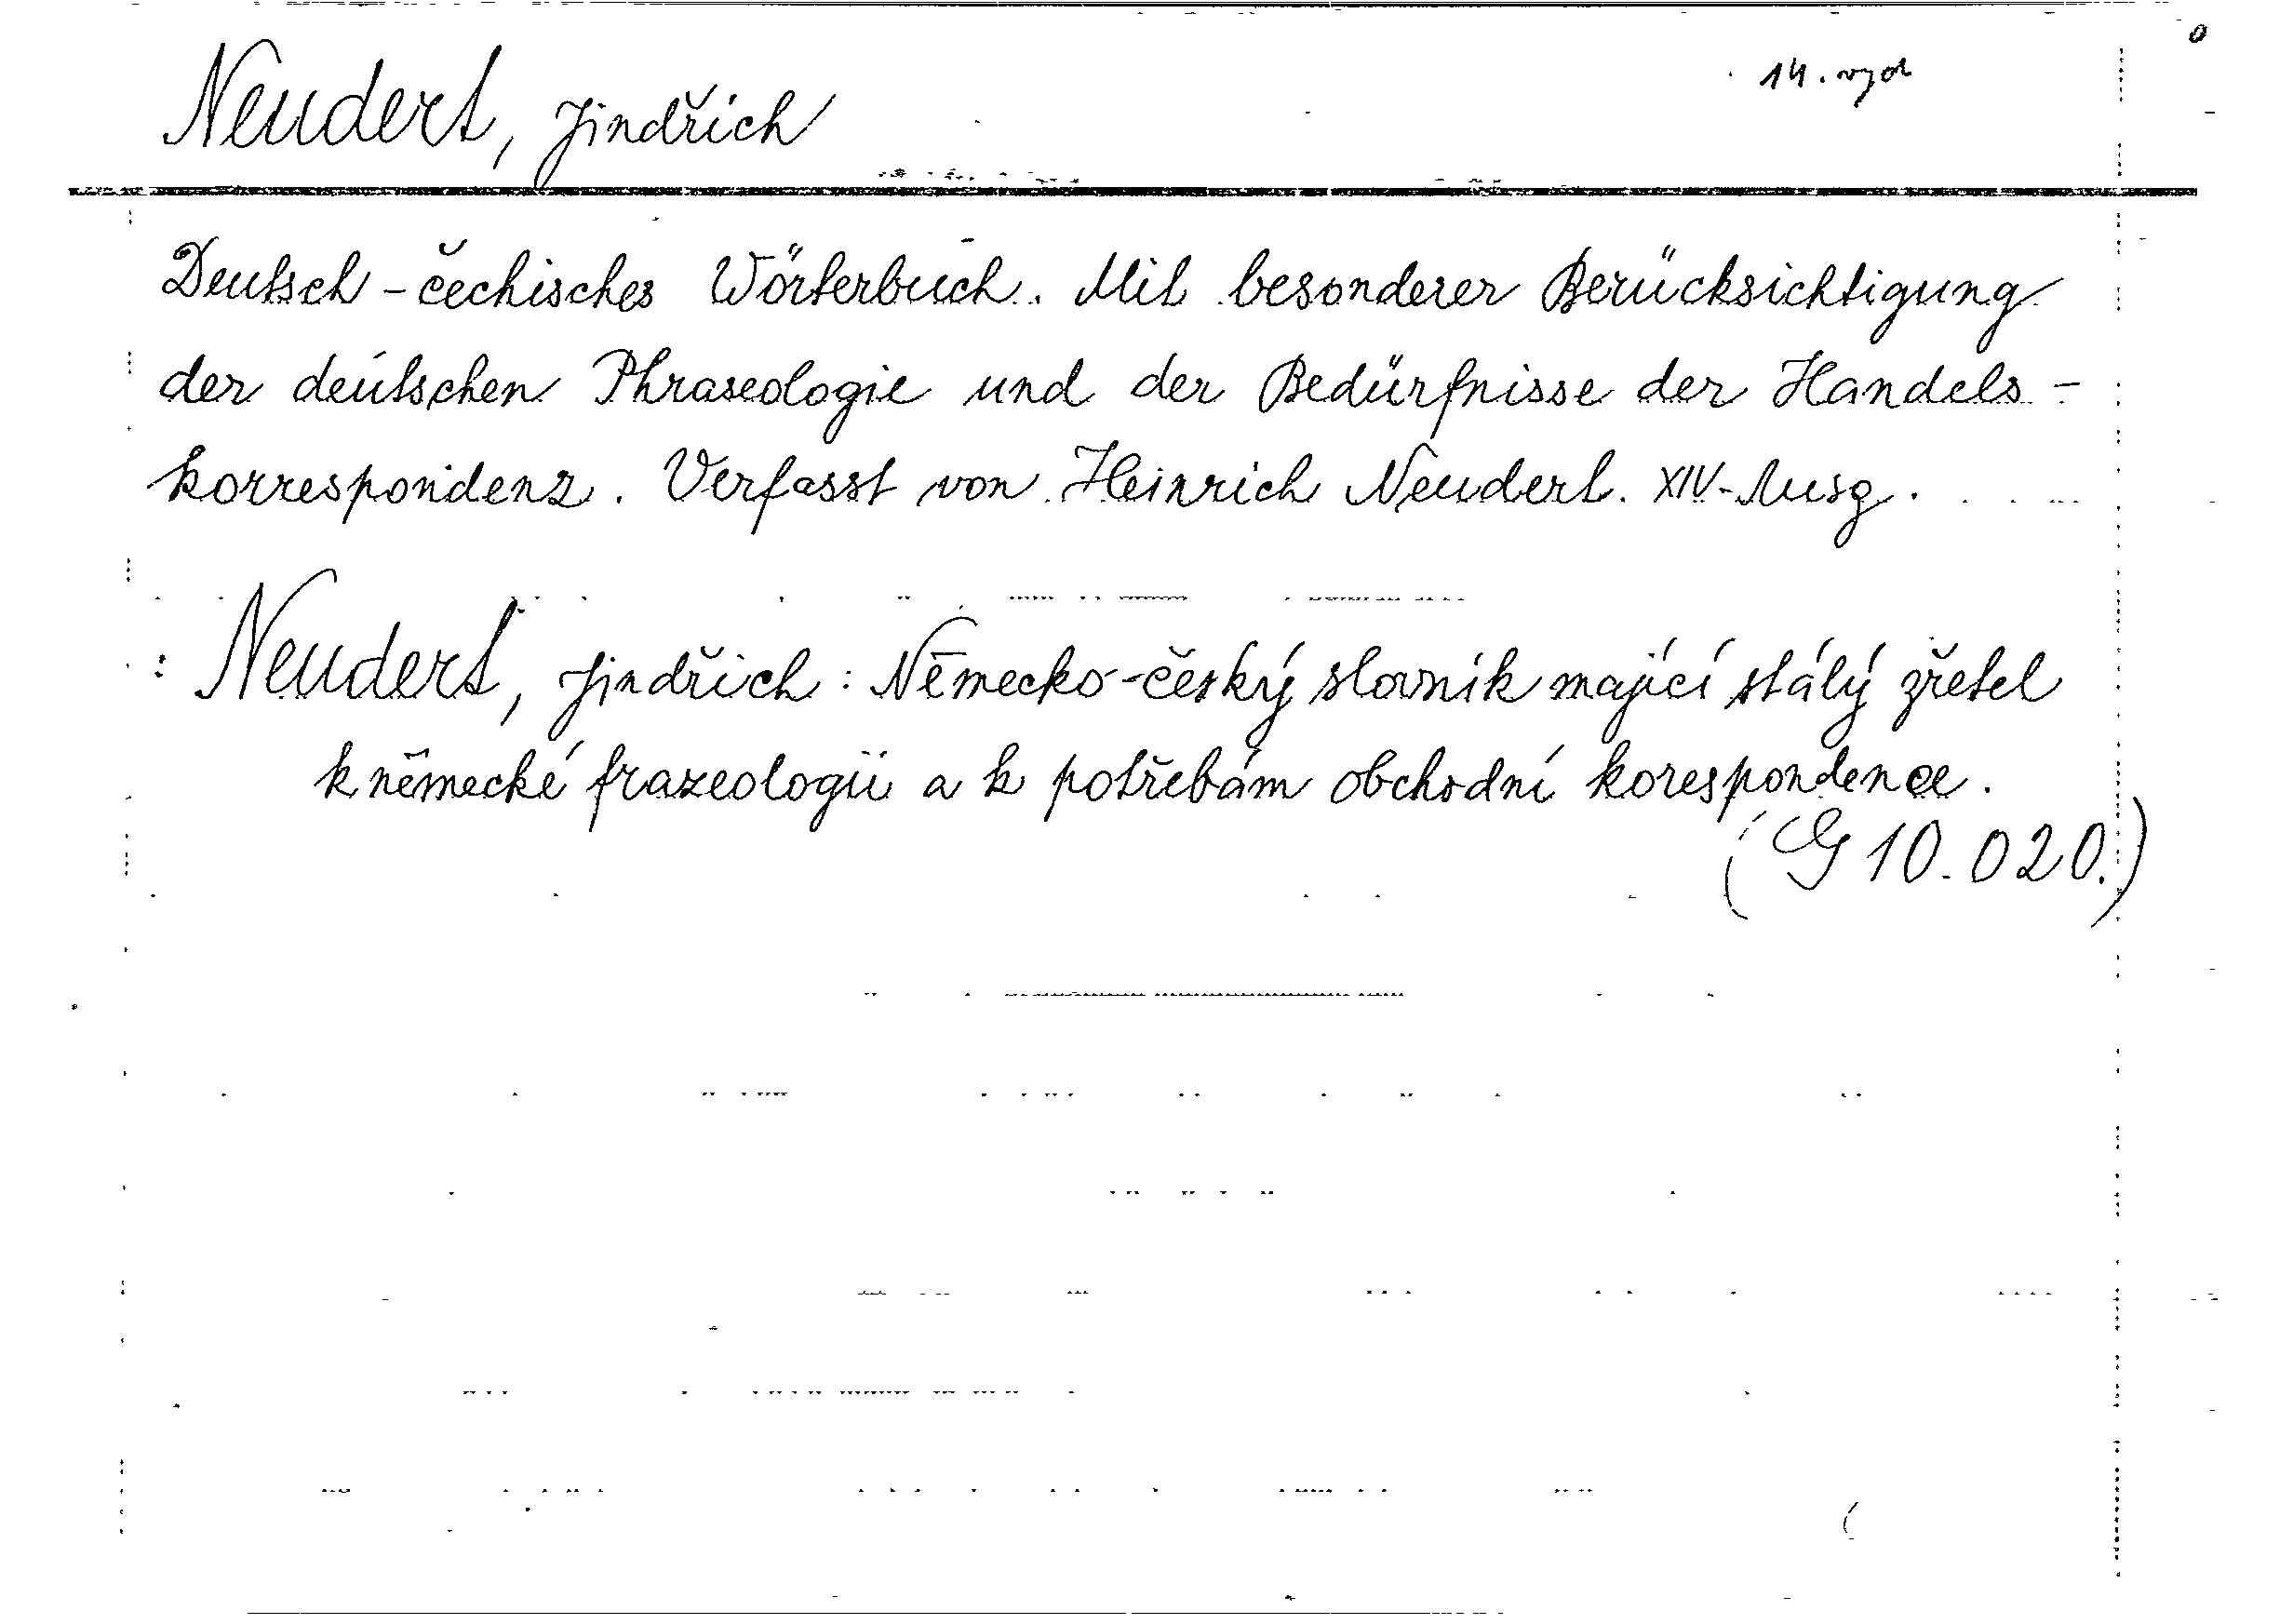 14. vyd
Neudert, Jindřich
Deutsch-čechisches Wörterbuch. Mit besonderer Berücksichtigung
der deutschen Phraseologie und der Bedürfnisse der Handels-
korrespondenz. Verfasst von Heinrich Neudert. XIV-Ausg.
: Neudert, Jindřich: Německo-český slovník mající stálý zřetel
k německé frazeologii a k potřebám obchodní korespondence.
(G 10.020.)